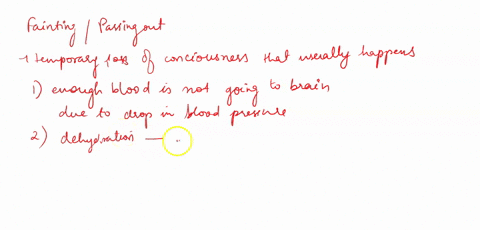 Fainting / Passing out
→ temporary loss of conciousness that usually happens
1) enough blood is not going to brain
due to drop in blood pressure
2) dehydration —